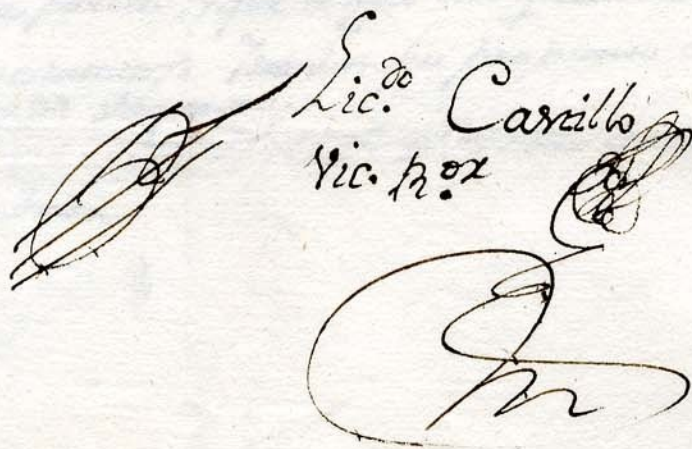 Lic.ᵈᵒ Carrillo
Vic. R.ᵒʳ